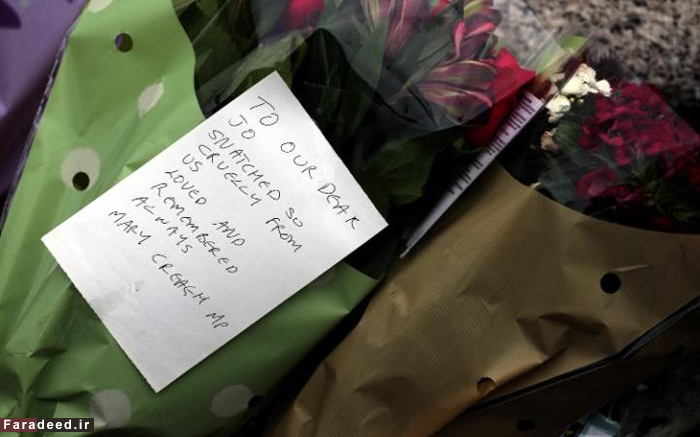 TO OUR DEAR
JO
SNATCHED SO
CRUELLY FROM
US
LOVED AND
REMEMBERED
ALWAYS
MARY CREAGH MP
Faradeed.ir